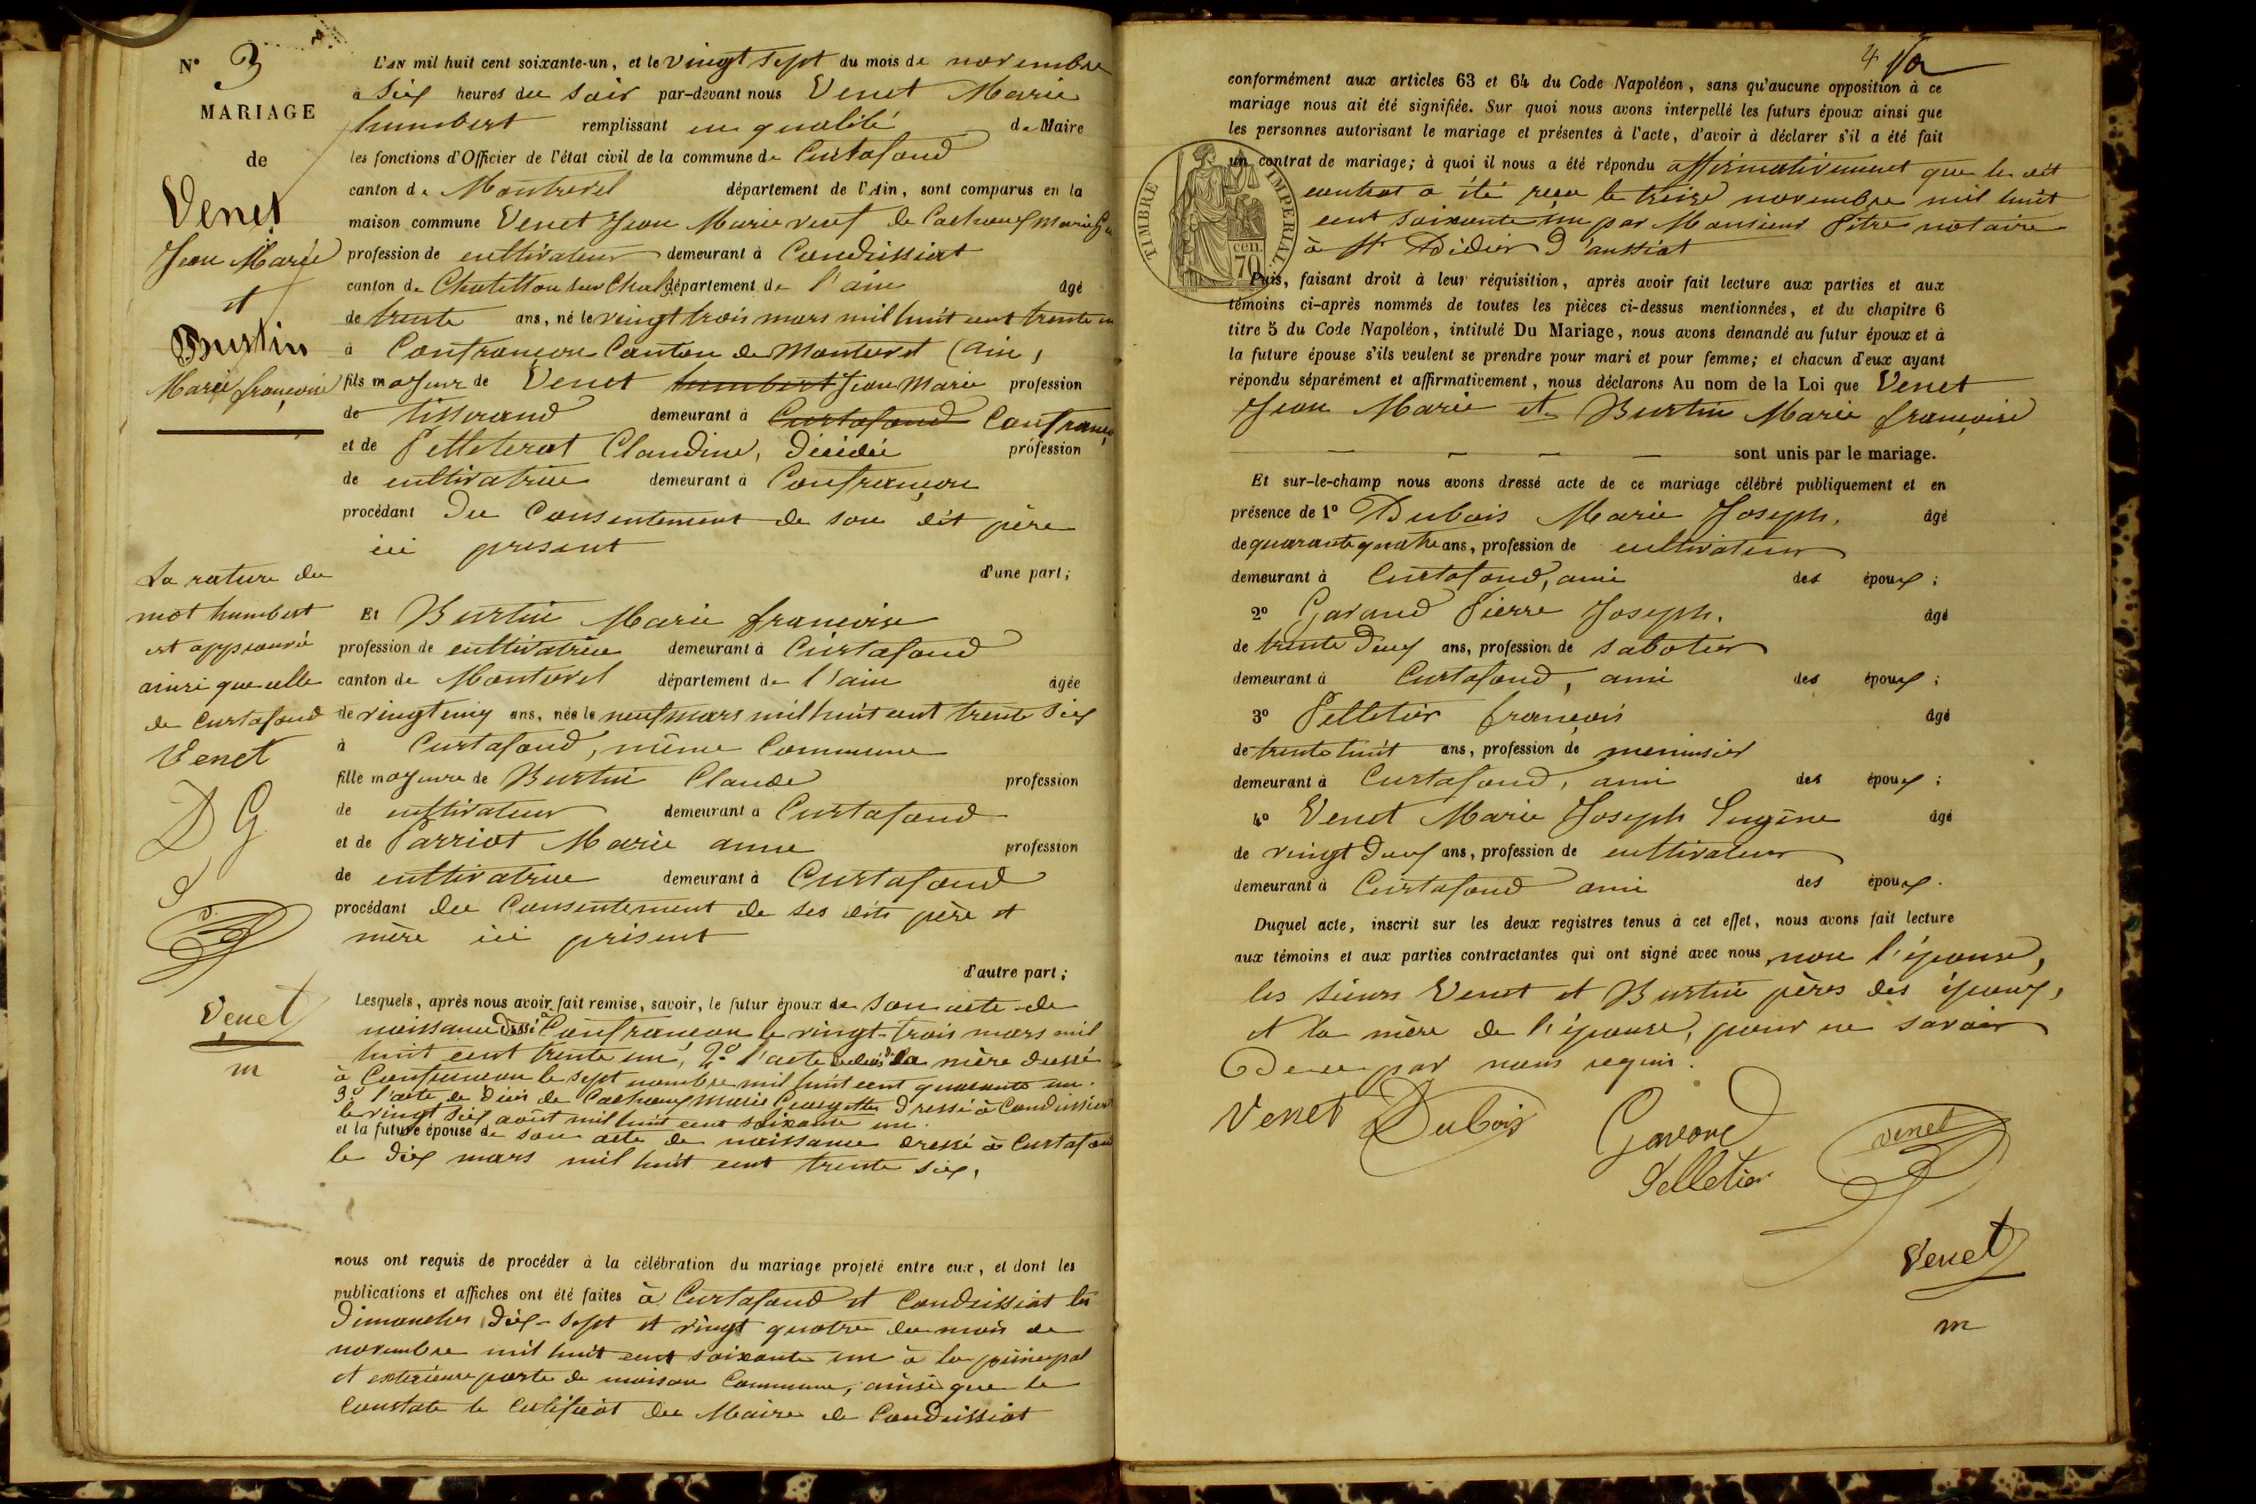 N° 3
MARIAGE
de
Venet
Jean Marie
et
Burtin
Marie françoise
L'AN mil huit cent soixante-un, et le vingt sept du mois de novembre
à six heures du soir par-devant nous Venet Marie
humbert remplissant en qualité de Maire
les fonctions d'Officier de l'état civil de la commune de Curtafond
canton de Montrevel département de l'Ain, sont comparus en la
maison commune Venet Jean Marie veuf de Marie
profession de cultivateur demeurant à Condeissiat
canton de Chatillon sur Chal. département de l'ain âgé
de trente ans, né le vingt trois mars mil huit cent trente un
à Confrançon Canton de Montrevel (ain)
fils majeur de Venet humbert Jean Marie profession
de tisserand demeurant à Curtafond Confrançon
et de Pelleterat Claudine, décédée profession
de cultivatrice demeurant à Confrançon
procédant du Consentement de son dit père
ici présent
d'une part;
La rature du
mot humbert
est approuvée
ainsi que celle
de Curtafond
Venet
D G
P
Venet
m
Et Burtin Marie françoise
profession de cultivatrice demeurant à Curtafond
canton de Montrevel département de l'ain âgée
de vingt cinq ans, née le neuf mars mil huit cent trente six
à Curtafond, même Commune
fille majeure de Burtin Claude profession
de cultivateur demeurant à Curtafond
et de Parriat Marie anne profession
de cultivatrice demeurant à Curtafond
procédant du Consentement de ses dits père et
mère ici présent
d'autre part;
Lesquels, après nous avoir fait remise, savoir, le futur époux de son acte de
naissance dressé à Confrançon le vingt-trois mars mil
huit cent trente un, 2° l'acte de décès de la mère dressé
à Confrançon le sept novembre mil huit cent quarante un.
3° l'acte de décès de Marie Georgette dressé à Condeissiat
le vingt six août mil huit cent soixante un.
et la future épouse de son acte de naissance dressé à Curtafond
le dix mars mil huit cent trente six,
nous ont requis de procéder à la célébration du mariage projeté entre eux, et dont les
publications et affiches ont été faites à Curtafond et Condeissiat les
Dimanches dix-sept et vingt quatre du mois de
novembre mil huit cent soixante un à la principal
et extérieure porte de maison Commune, ainsi que le
Constate le Certificat du Maire de Condeissiat
4
conformément aux articles 63 et 64 du Code Napoléon, sans qu'aucune opposition à ce
mariage nous ait été signifiée. Sur quoi nous avons interpellé les futurs époux ainsi que
les personnes autorisant le mariage et présentes à l'acte, d'avoir à déclarer s'il a été fait
un contrat de mariage; à quoi il nous a été répondu affirmativement que le dit
contrat a été reçu le treize novembre mil huit
cent soixante un par Monsieur Pitre notaire
à St Didier D'aussiat
TIMBRE IMPERIAL
cen.
70
Puis, faisant droit à leur réquisition, après avoir fait lecture aux parties et aux
témoins ci-après nommés de toutes les pièces ci-dessus mentionnées, et du chapitre 6
titre 5 du Code Napoléon, intitulé Du Mariage, nous avons demandé au futur époux et à
la future épouse s'ils veulent se prendre pour mari et pour femme; et chacun d'eux ayant
répondu séparément et affirmativement, nous déclarons Au nom de la Loi que Venet
Jean Marie et Burtin Marie françoise
sont unis par le mariage.
Et sur-le-champ nous avons dressé acte de ce mariage célébré publiquement et en
présence de 1° Dubois Marie Joseph, âgé
de quarante quatre ans, profession de cultivateur
demeurant à Curtafond, ami des époux;
2° Gavand Pierre Joseph. âgé
de trente deux ans, profession de sabotier
demeurant à Curtafond, ami des époux;
3° Pelletier françois âgé
de trente huit ans, profession de menuisier
demeurant à Curtafond, ami des époux;
4° Venet Marie Joseph Eugène âgé
de vingt deux ans, profession de cultivateur
demeurant à Curtafond ami des époux.
Duquel acte, inscrit sur les deux registres tenus à cet effet, nous avons fait lecture
aux témoins et aux parties contractantes qui ont signé avec nous, non l'épouse,
les sieurs Venet et Burtin pères des époux,
et la mère de l'épouse, pour ne savoir
De ce par nous requis.
Venet Dubois Gavand venet
Pelletier
Venet
m